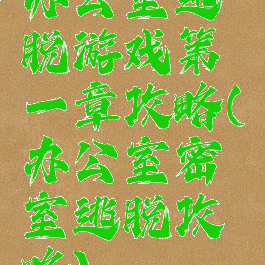 办公室逃
脱游戏第
一章攻略(
办公室密
室逃脱攻
略)